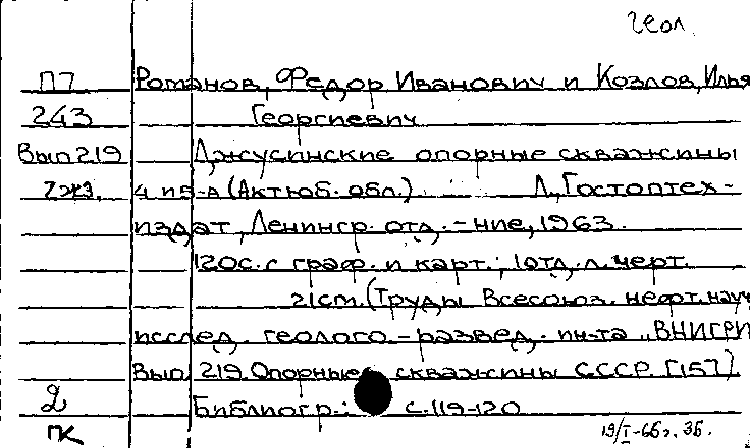 геол.
П7 Романов, Федор Иванович и Козлов, Илья
243 Георгиевич
Вып 219 Джусинские опорные скважины
2экз. 4 и 5-а (Актюб. обл.) Л., Гостоптех-
издат, Ленингр. отд.-ние, 1963.
120с. с граф. и карт.; 1 отд. л. черт.
21см. (Труды Всесоюз. нефт. науч
исслед. геолого-развед. ин-та "ВНИГРИ
Вып. 219. Опорные скважины СССР. [157])
2 Библиогр.: с. 119-120
ПК 19/I-66г. ЗБ.